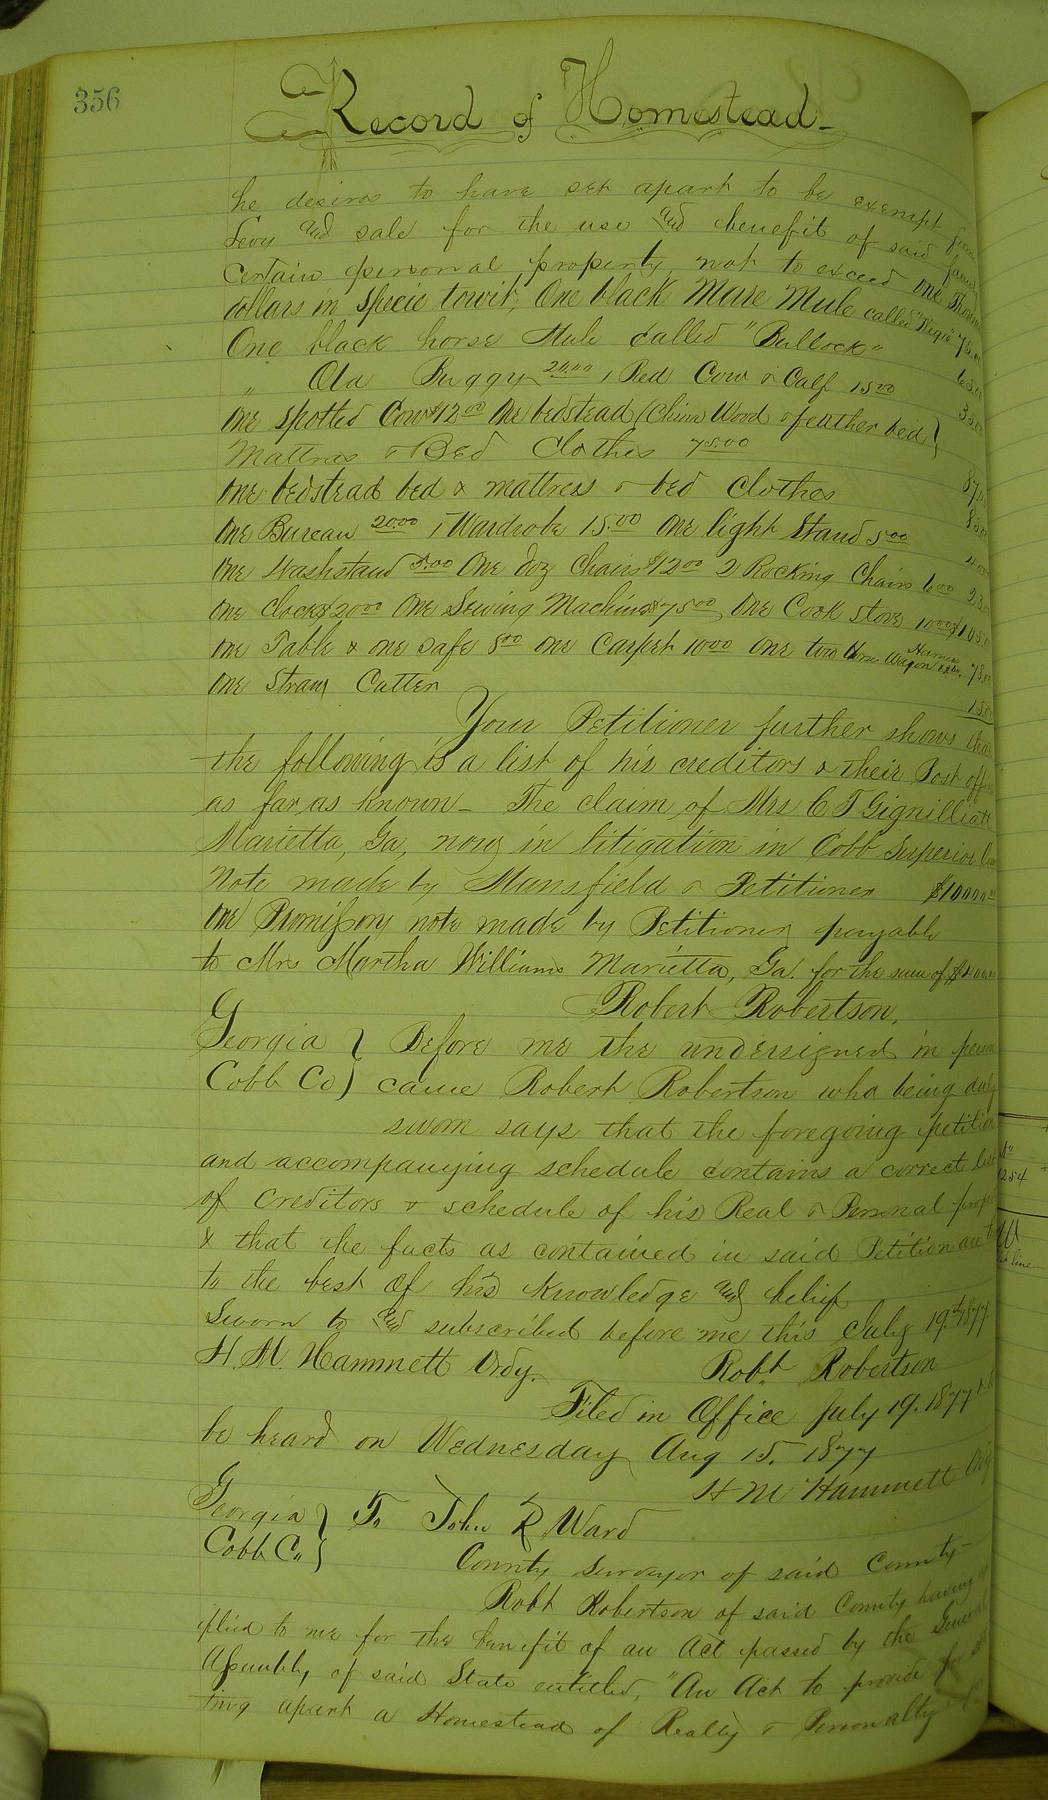 356
Record of Homestead
he desires to have set apart to be exempt from
Levy and sale for the use and benefit of said family
certain personal property, not to exceed one Thousand
dollars in specie towit; One black Mare Mule called 75.00
One black horse Mule called "Bullock" 65.00
" Old Buggy 20.00 1 Red Cow & Calf 15 00
One spotted Cow $12 00 One bedstead (China Wood & feather bed }
Mattras & Bed Clothes 75.00
One bedstead bed & mattress & bed Clothes
One Bureau 20.00 1 Wardrobe 15.00 One light Stand 5 00
One Washstand 5.00 One doz Chairs $12 00 2 Rocking Chairs 6 00
One Clock $20 00 One Sewing Machine $75 00 One Cook Stove 10 00
One Table & one safe 8 00 one Carpet 10 00 One two Horse Wagon Harness
One Straw Cutter
Your Petitioner further shows that
the following is a list of his creditors & their Post office
as far as known - The claim of Mrs C T Gignilliatt
Marietta, Ga, now in litigation in Cobb Superior
Note made by Mansfield & Petitioner
One Promissory note made by Petitioner payable
to Mrs Martha Williams Marietta, Ga. for the sum of
Robert Robertson,
Georgia } Before me the undersigned in person
Cobb Co } came Robert Robertson who being duly
sworn says that the foregoing petition
and accompanying schedule contains a correct list
of Creditors & schedule of his Real & Personal
& that the facts as contained in said Petition are
to the best of his Knowledge and belief
Sworn to and subscribed before me this July 19th 1877
H. M. Hammett Ordy. Robt Robertson
Filed in Office July 19. 1877
be heard on Wednesday Aug 15. 1877
H M Hammett Ordy
Georgia } To John R Ward
Cobb Co } County Surveyor of said County-
Robt Robertson of said County having
plied to me for the benefit of an Act passed by the General
Assembly of said State entitled, "An Act to provide for
ting apart a Homestead of Realty & Personalty